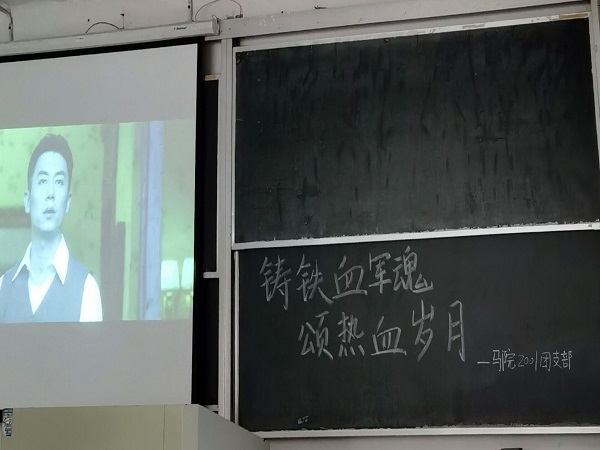 铸铁血军魂
颂热血岁月
—马院2001团支部